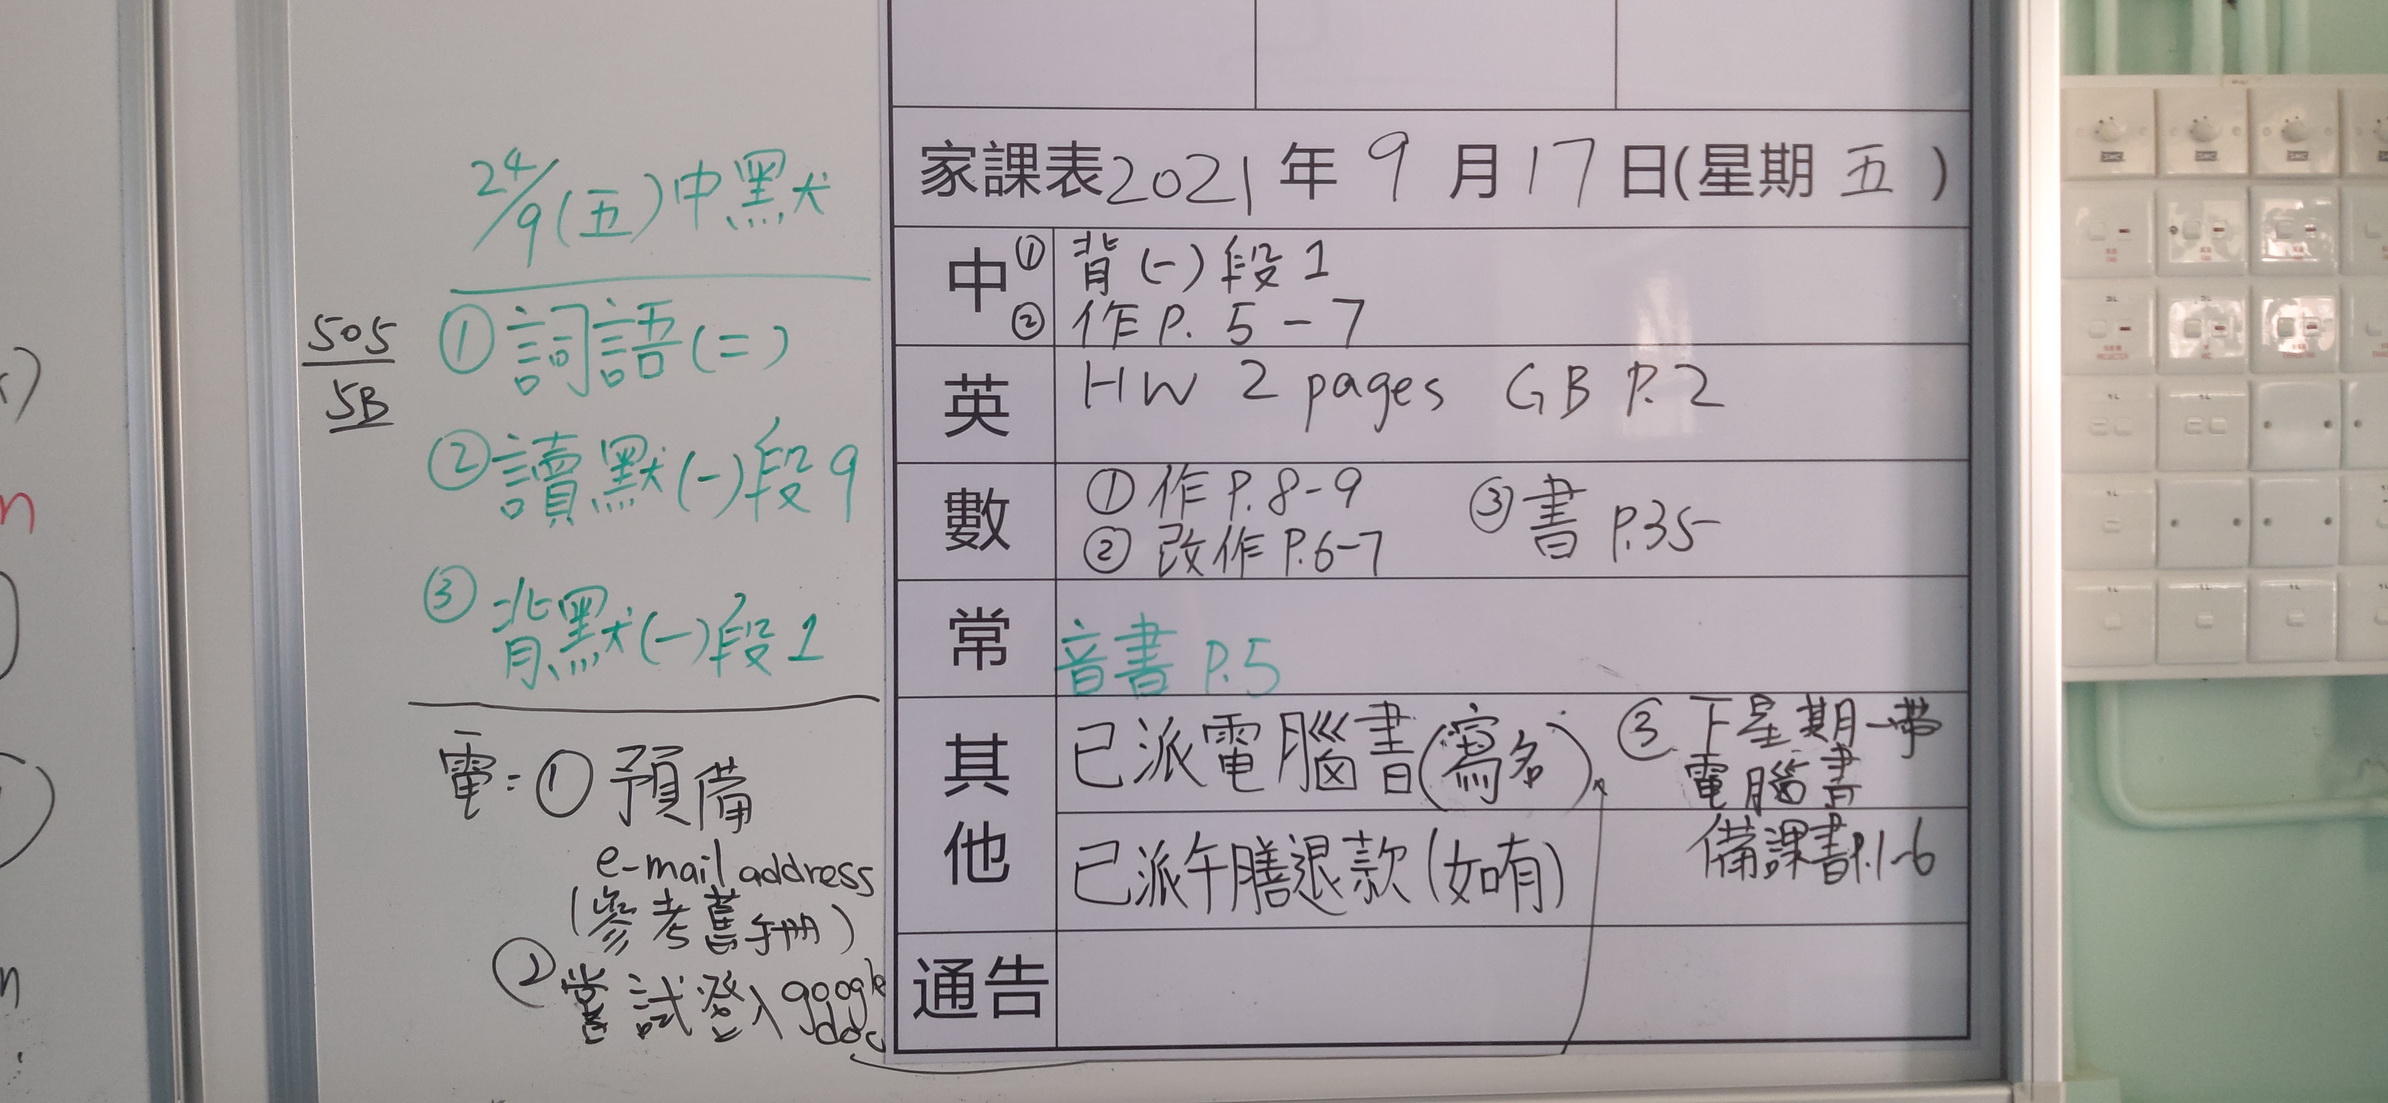 24/9(五)中默
①詞語(二)
②讀默(一)段9
③背默(一)段1
505
5B
電:①預備
e-mail address
(參考舊手冊)
②嘗試登入google
doc
家課表2021年9月17日(星期五)
中①背(一)段1
②作P. 5-7
英 HW 2 pages GB P.2
數 ①作P.8-9 ③書 P.35
②改作P.6-7
常 音書 P.5
其他 已派電腦書(寫名) ③下星期一帶
電腦書
備課書P.1-6
已派午膳退款(如有)
通告